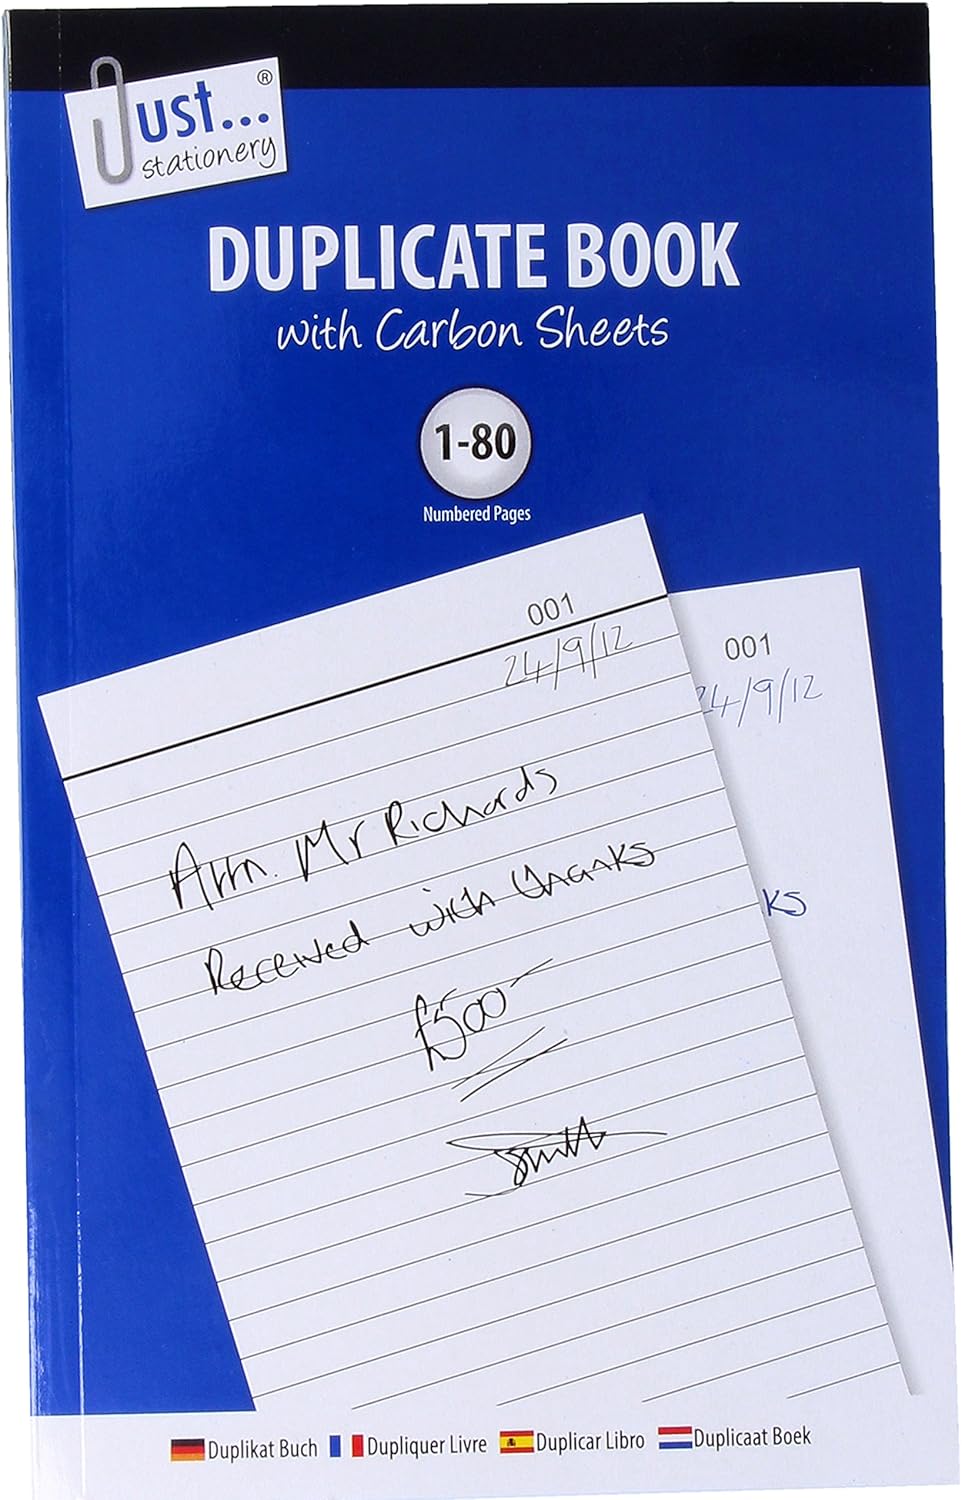 Just... ®
stationery
DUPLICATE BOOK
with Carbon Sheets
1-80
Numbered Pages
001
24/9/12
Attn. Mr Richards
Received with thanks
£500-
Smith
001
24/9/12
ks
Duplikat Buch Dupliquer Livre Duplicar Libro Duplicaat Boek